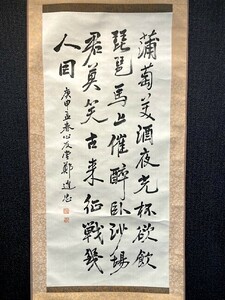 蒲萄美酒夜光杯欲飲
琵琶馬上催醉卧沙場
君莫笑古来征戦幾
人回
庚申孟春心友堂鄭進忠